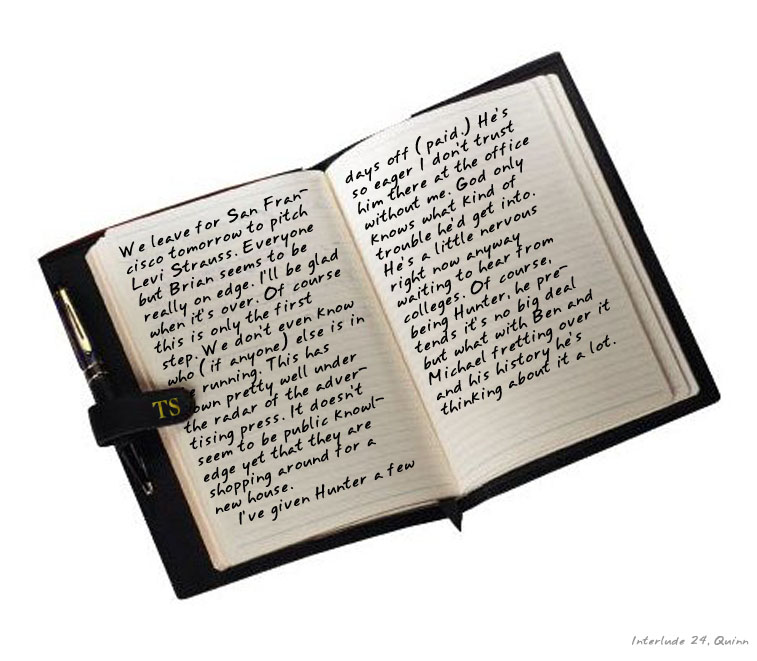 We leave for San Fran-
cisco tomorrow to pitch
Levi Strauss. Everyone
but Brian seems to be
really on edge. I'll be glad
when it's over. Of course
this is only the first
step. We don't even know
who (if anyone) else is in
running. This has
own pretty well under
the radar of the adver-
tising press. It doesn't
seem to be public knowl-
edge yet that they are
shopping around for a
new house.
I've given Hunter a few
days off (paid.) He's
so eager I don't trust
him there at the office
without me. God only
knows what kind of
trouble he'd get into.
He's a little nervous
right now anyway
waiting to hear from
colleges. Of course,
being Hunter, he pre-
tends it's no big deal
but what with Ben and
Michael fretting over it
and his history he's
thinking about it a lot.
TS
Interlude 24, Quinn